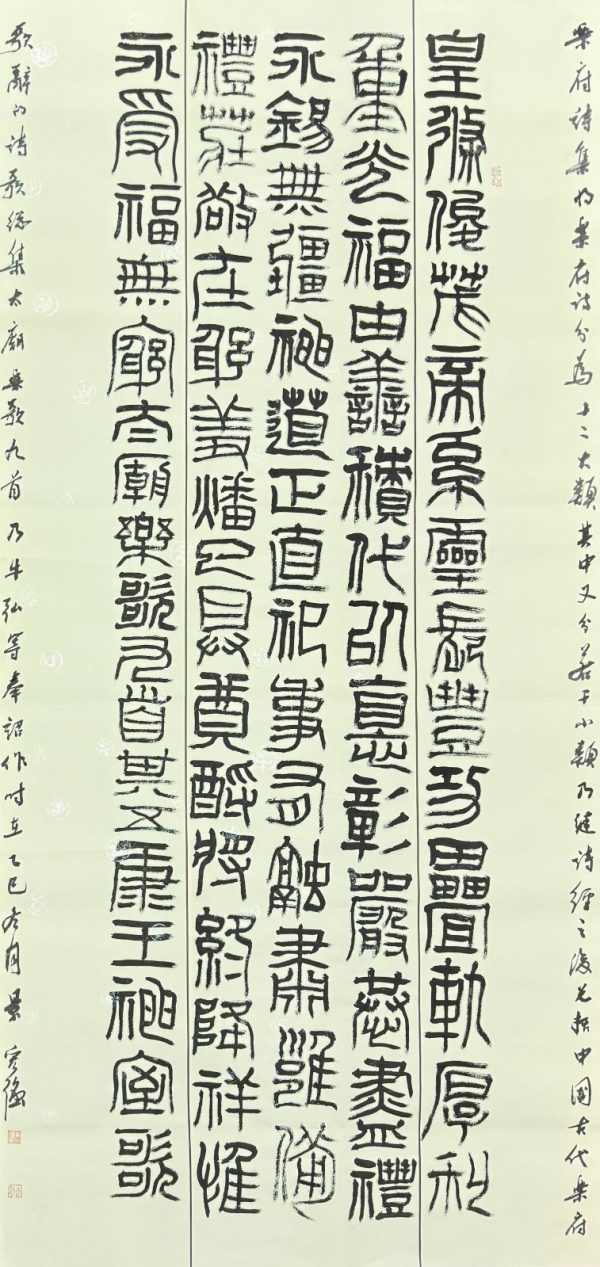 樂府詩集將樂府詩分為十二大類其中又分若干小類乃繼詩經之後中國古代樂府
皇條俊茂帝系靈長豐功疊軌厚利
重光福由善積代以悳彰嚴恭盡禮
永錫無疆神道正直祀事有融肅雝備
禮莊敬在躬羞燔已具奠酹將終降祥惟
永受福無窮太廟樂歌九首其五康王神室歌
歌辭的詩歌總集太廟樂歌九首乃牛弘等奉詔作時在乙巳冬月景